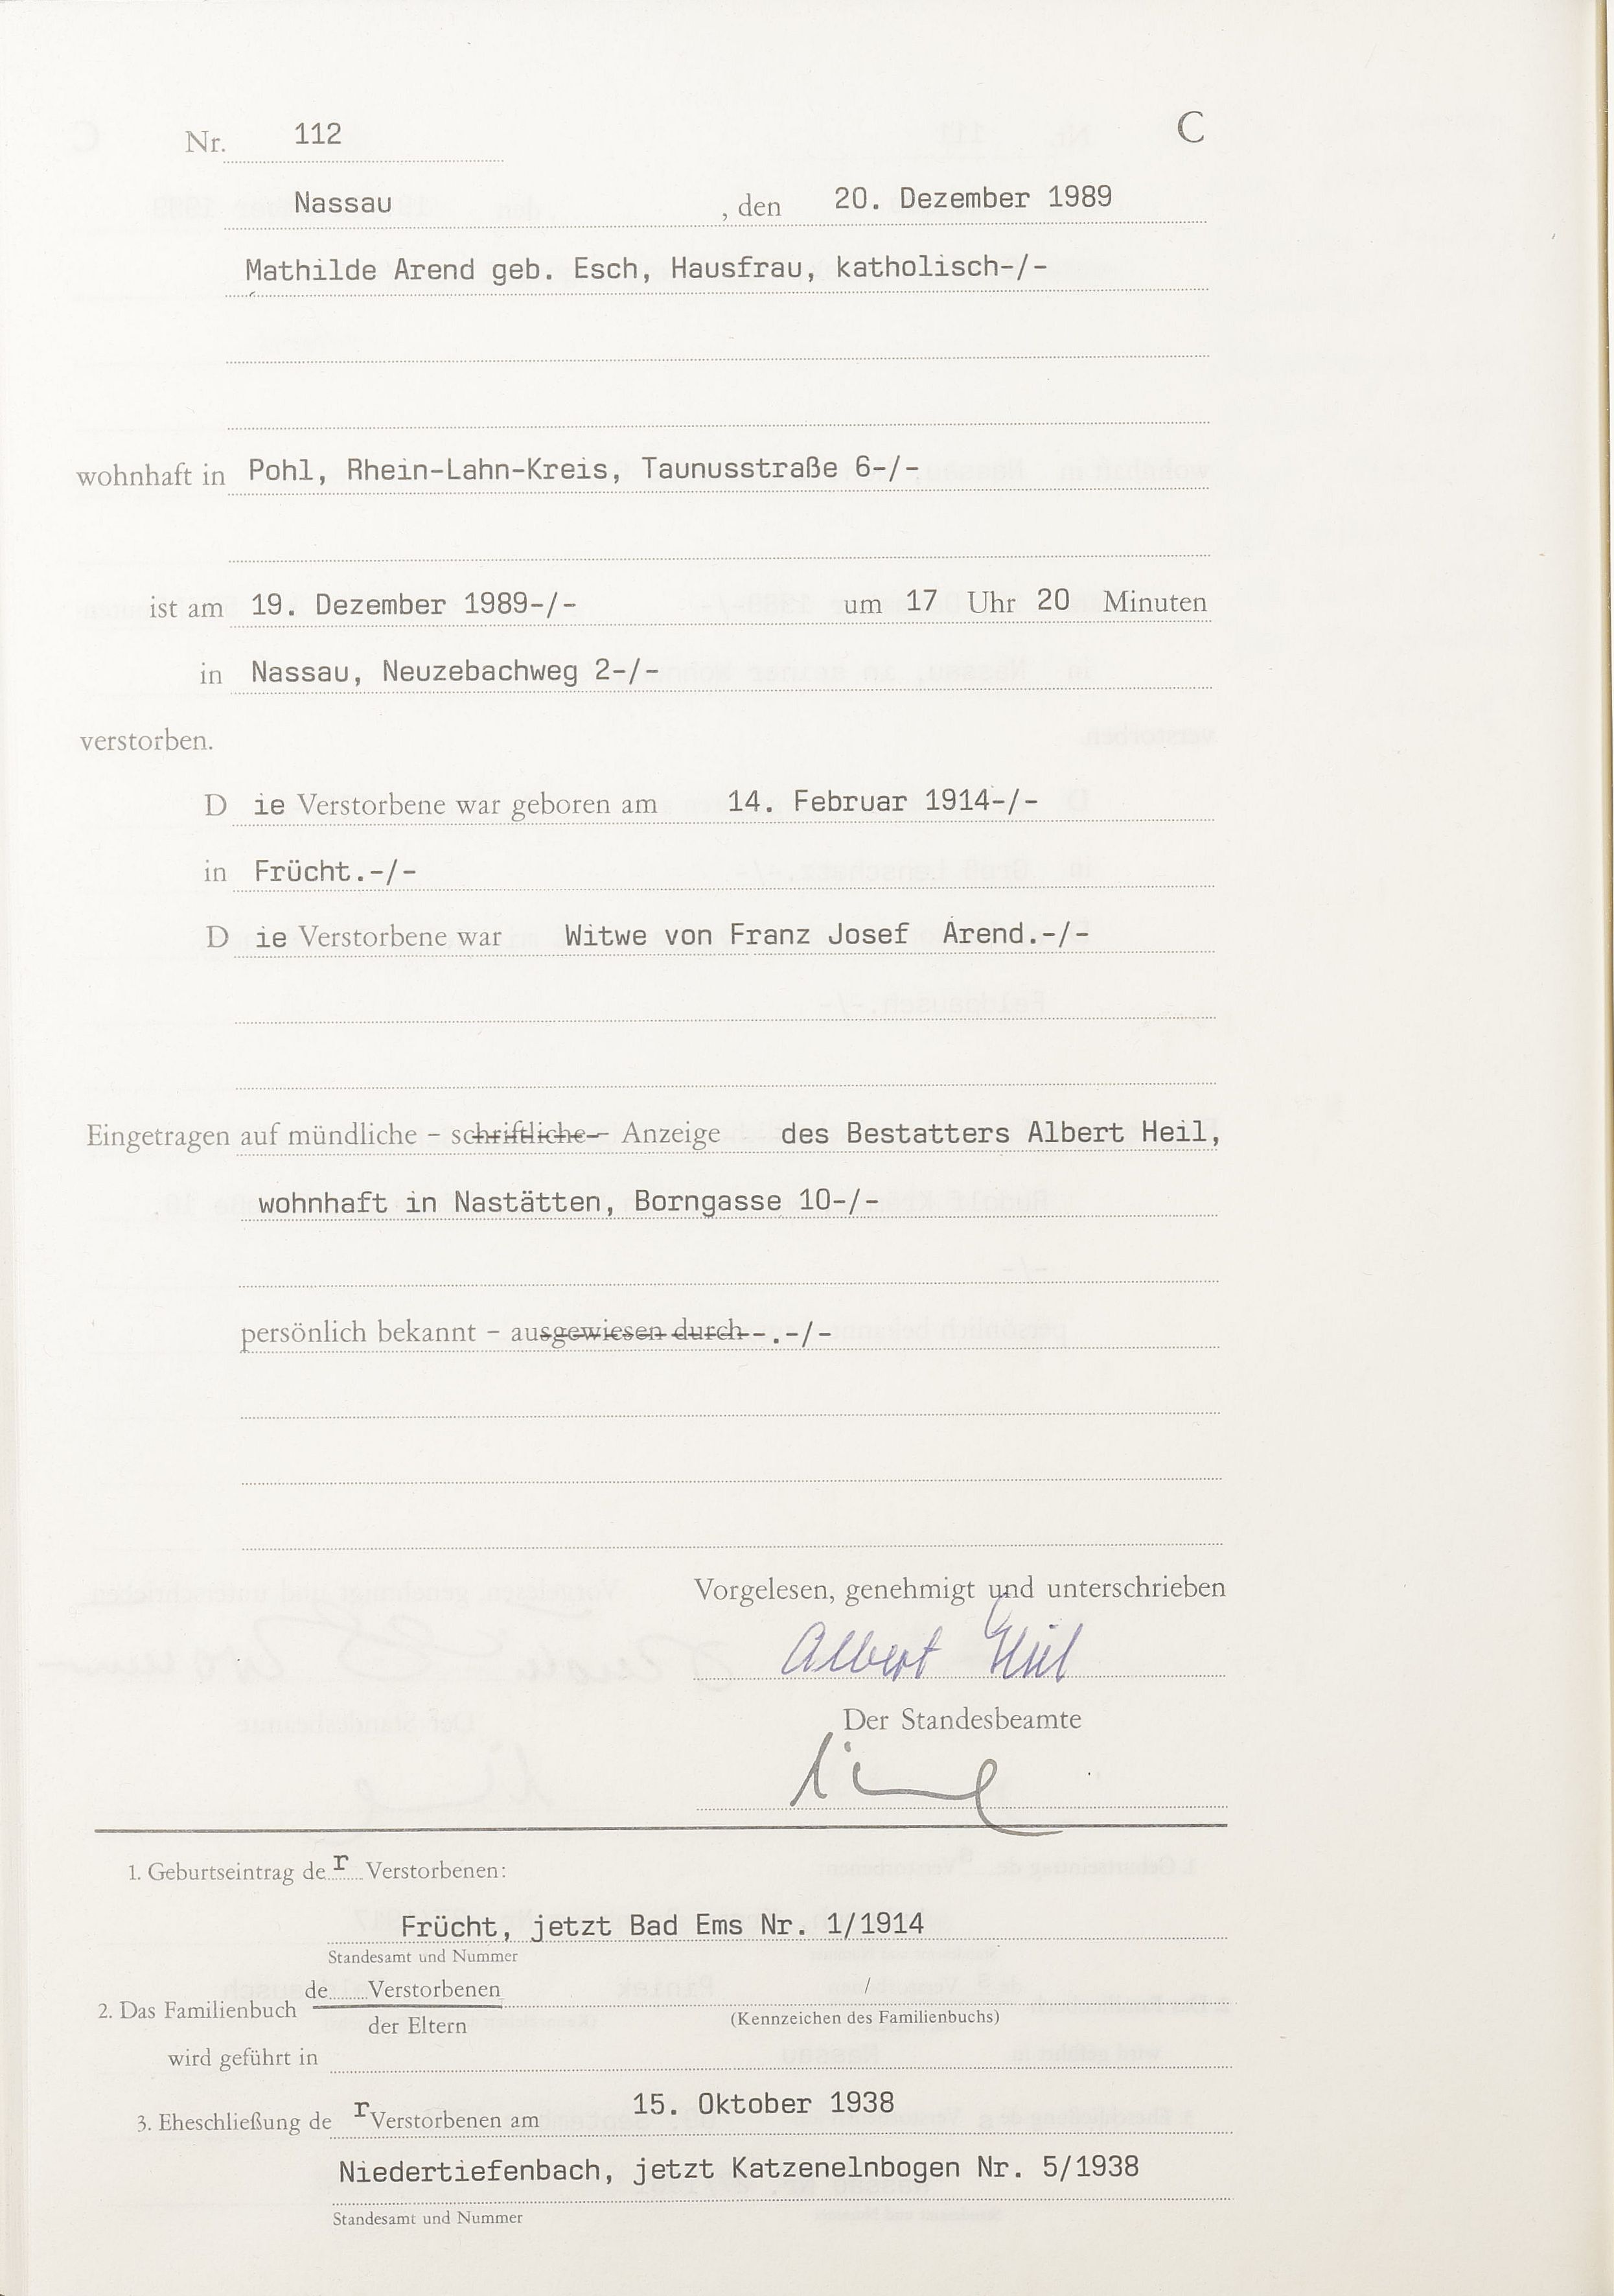 Nr. 112 C
Nassau , den 20. Dezember 1989
Mathilde Arend geb. Esch, Hausfrau, katholisch-/-
wohnhaft in Pohl, Rhein-Lahn-Kreis, Taunusstraße 6-/-
ist am 19. Dezember 1989-/- um 17 Uhr 20 Minuten
in Nassau, Neuzebachweg 2-/-
verstorben.
D ie Verstorbene war geboren am 14. Februar 1914-/-
in Frücht.-/-
D ie Verstorbene war Witwe von Franz Josef Arend.-/-
Eingetragen auf mündliche – schriftliche – Anzeige des Bestatters Albert Heil,
wohnhaft in Nastätten, Borngasse 10-/-
persönlich bekannt – ausgewiesen durch-.-/-
Vorgelesen, genehmigt und unterschrieben
Albert Heil
Der Standesbeamte
1. Geburtseintrag de r Verstorbenen:
Frücht, jetzt Bad Ems Nr. 1/1914
Standesamt und Nummer
de Verstorbenen /
2. Das Familienbuch
der Eltern (Kennzeichen des Familienbuchs)
wird geführt in
3. Eheschließung de r Verstorbenen am 15. Oktober 1938
Niedertiefenbach, jetzt Katzenelnbogen Nr. 5/1938
Standesamt und Nummer